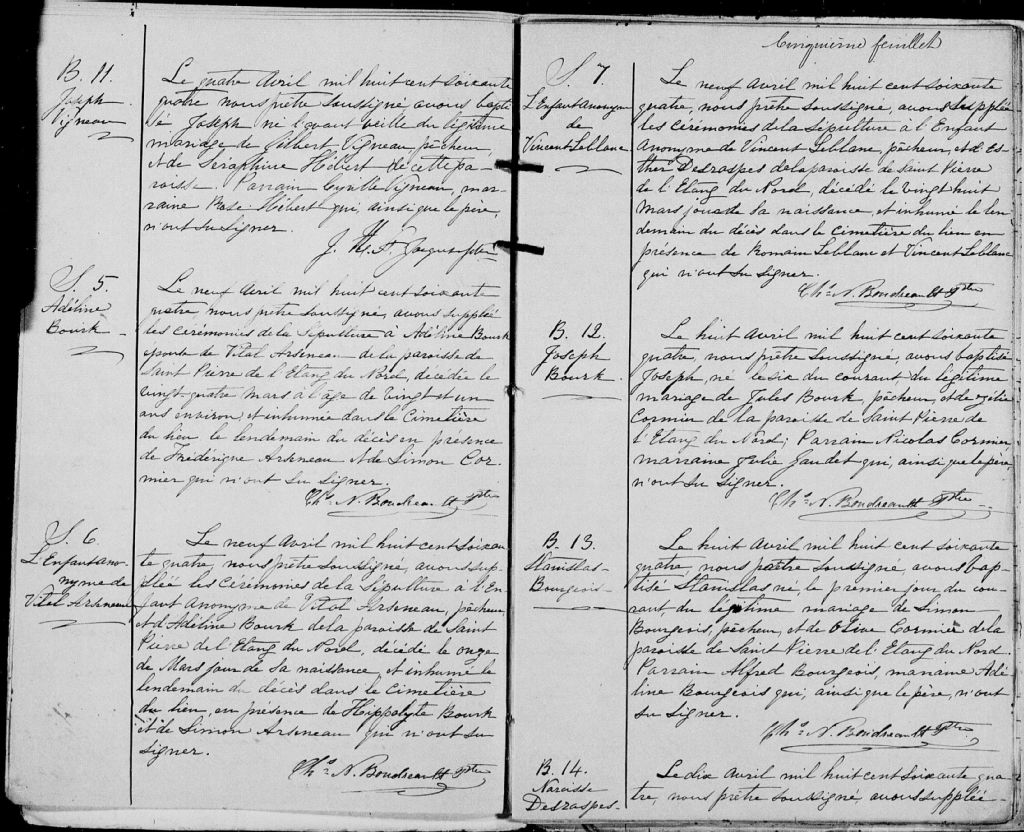 B. 11.
Joseph
Vigneau
Le quatre Avril mil huit cent soixante
quatre nous prêtre soussigné avons bapti
sé Joseph né l'avant veille du légitime
mariage de Gilbert Vigneau, pêcheur,
et de Séraphine Hébert de cette pa-
roisse. Parrain Cyrille Vigneau, mar-
raine Rose Hébert qui, ainsi que le père,
n'ont su signer.
S. 5.
Adéline
Bourk
Le neuf Avril mil huit cent soixante
quatre nous prêtre soussigné, avons suppléé
les cérémonies de la sépulture à Adéline Bourk
épouse de Vital Arseneau de la paroisse de
Saint Pierre de l'Etang du Nord, décédée le
vingt-quatre Mars à l'âge de vingt et un
ans environ, et inhumée dans le Cimetière
du lieu le lendemain du décès en présence
de Fréderique Arseneau et de Simon Cor-
mier qui n'ont su signer.
Chs. N. Boudreault Ptre
S. 6.
L'Enfant ano-
nyme de
Vital Arseneau
Le neuf Avril mil huit cent soixan-
te quatre, nous prêtre soussigné, avons sup-
pléé les Cérémonies de la Sépulture à l'En-
fant Anonyme de Vital Arseneau, pêcheur
et d'Adéline Bourk de la paroisse de Saint
Pierre de l'Etang du Nord, décédé le onze
de Mars jour de sa naissance, et inhumé le
lendemain du décès dans le Cimetière
du lieu, en présence de Hippolyte Bourk
et de Simon Arseneau qui n'ont su
signer.
Chs. N. Boudreault Ptre
Cinquième feuillet
S. 7.
L'Enfant Anonyme
de
Vincent Leblanc
Le neuf Avril mil huit cent soixante
quatre, nous prêtre soussigné, avons suppléé
les cérémonies de la Sépulture à l'Enfant
Anonyme de Vincent Leblanc, pêcheur, et d'Es-
ther Desraspes de la paroisse de Saint Pierre
de l'Etang du Nord, décédé le vingt huit
Mars jour de sa naissance, et inhumé le len-
demain du décès dans le Cimetière du lieu en
présence de Romain Leblanc et Vincent Leblanc
qui n'ont su signer.
Chs. N. Boudreault Ptre
B. 12.
Joseph
Bourk.
Le huit Avril mil huit cent soixante
quatre, nous prêtre soussigné, avons baptisé
Joseph, né le six du courant, du légitime
mariage de Jules Bourk, pêcheur, et de
Cormier de la paroisse de Saint Pierre de
l'Etang du Nord; Parrain Nicolas Cormier
marraine Julie Gaudet qui, ainsi que le père,
n'ont su signer.
Chs. N. Boudreault Ptre
B. 13.
Stanislas
Bourgeois
Le huit Avril mil huit cent soixante
quatre, nous prêtre soussigné, avons bap-
tisé Stanislas né, le premier jour du cou-
rant du légitime mariage de Simon
Bourgeois, pêcheur, et de Olive Cormier de la
paroisse de Saint Pierre de l'Etang du Nord.
Parrain Alfred Bourgeois, marraine Adé-
line Bourgeois qui, ainsi que le père, n'ont
su signer.
Chs. N. Boudreault Ptre
B. 14.
Narcisse
Desraspes-
Le dix Avril mil huit cent soixante qua-
tre, nous prêtre soussigné, avons suppléé-